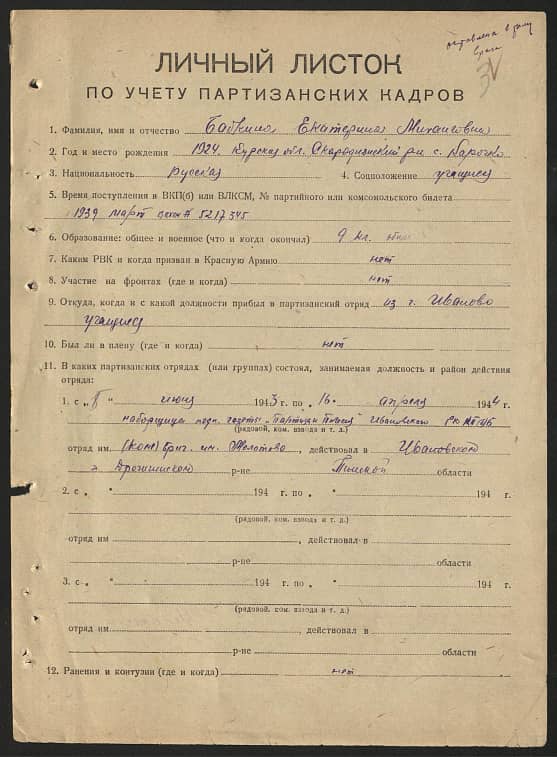 оставлена в тылу
врага
ЛИЧНЫЙ ЛИСТОК
ПО УЧЕТУ ПАРТИЗАНСКИХ КАДРОВ
1. Фамилия, имя и отчество Екатерина Михайловна
2. Год и место рождения 1924. Курская обл. с.
3. Национальность Русская 4. Соцположение учащийся
5. Время поступления в ВКП(б) или ВЛКСМ, № партийного или комсомольского билета
1939 март 5217345
6. Образование: общее и военное (что и когда окончил) 9 кл.
7. Каким РВК и когда призван в Красную Армию нет
8. Участие на фронтах (где и когда) нет
9. Откуда, когда и с какой должности прибыл в партизанский отряд из г. Иваново
учащийся
10. Был ли в плену (где и когда) нет
11. В каких партизанских отрядах (или группах) состоял, занимаемая должность и район действия
отряда:
1. с „ " июня 1943 г. по „16" апреля 1944 г.
наборщица подп. газеты „Партизан Ивановского РК КП(б)Б
(рядовой, ком. взвода и т. д.)
отряд им. бриг. им. Молотова, действовал в Ивановском
Дрогичинском р-не Пинской области
2. с „ " 194 г. по „ " 194 г.
(рядовой, ком. взвода и т. д.)
отряд им , действовал в
р-не области
3. с „ " 194 г. по „ " 194 г.
(рядовой, ком. взвода и т. д.)
отряд им , действовал в
р-не области
12. Ранения и контузии (где и когда) нет